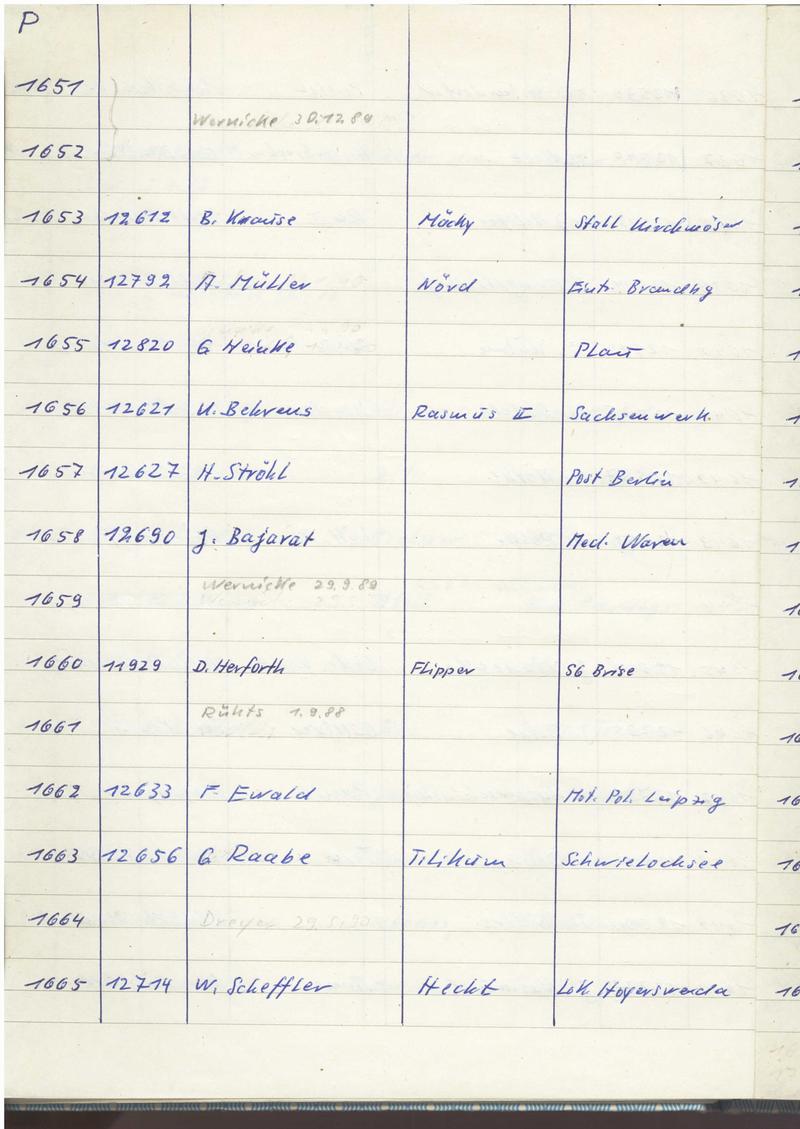 P
1651
Wernicke 30.12.89
1652
1653 12612 B. Krause Möcky Stahl Kirchmöser
1654 12792 A. Müller Nörd Eintr. Brandbg
1655 12820 G Heinke Plau
1656 12621 U. Behrens Rasmus II Sachsenwerk.
1657 12627 H. Ströhl Post Berlin
1658 12690 J. Bajarat Med. Waren
Wernicke 29.9.89
1659
1660 11929 D. Herforth Flipper SG Brise
Rühts 1.9.88
1661
1662 12633 F. Ewald Mot. Pol. Leipzig
1663 12656 G Raabe Tilikum Schwielochsee
1664 Dreyer 29.5.90
1665 12714 W. Scheffler Hecht Lok Hoyerswerda